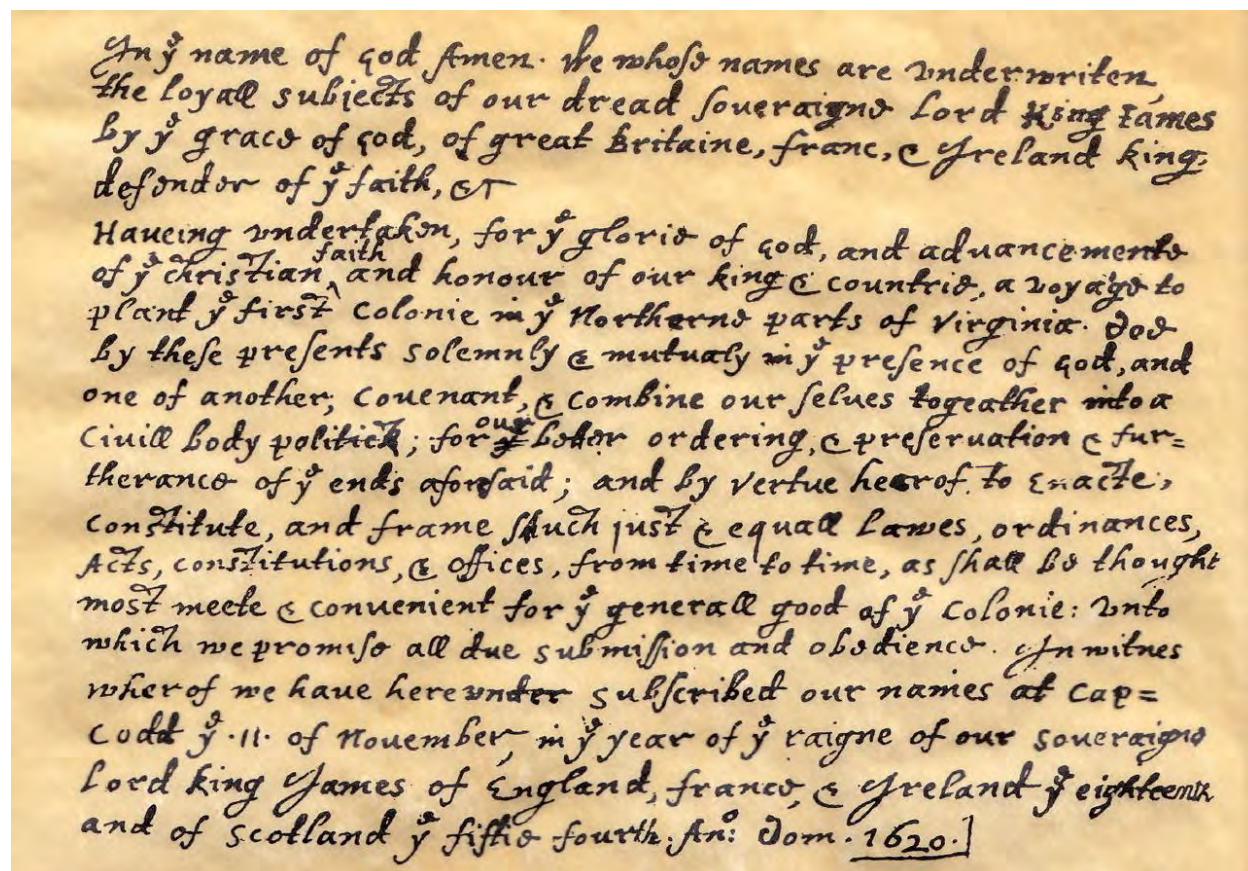 In yᵉ name of god Amen. We whose names are vnderwriten,
the loyall subjects of our dread soueraigne Lord King Iames
by yᵉ grace of god, of great Britaine, franc, & Ireland king,
defender of yᵉ faith, &c
Haueing vndertaken, for yᵉ glorie of god, and aduancemente
of yᵉ christian ^faith and honour of our king & countrie, a voyage to
plant yᵉ first colonie in yᵉ Northerne parts of Virginia. Doe
by these presents solemnly & mutualy in yᵉ presence of god, and
one of another, couenant, & combine our selues togeather into a
Ciuill body politick; for our better ordering, & preseruation & fur=
therance of yᵉ ends aforesaid; and by vertue hearof to Enacte,
constitute, and frame shuch just & equall Lawes, ordinances,
Acts, constitutions, & offices, from time to time, as shall be thought
most meete & conuenient for yᵉ generall good of yᵉ colonie: vnto
which we promise all due submission and obedience. In witnes
wherof we haue herevnder subscribed our names at Cap=
Codd yᵉ .11. of Nouember, in yᵉ year of yᵉ raigne of our soueraigne
Lord king James of England, france, & Ireland yᵉ eighteenth
and of Scotland yᵉ fiftie fourth. Anº: Dom. 1620.]